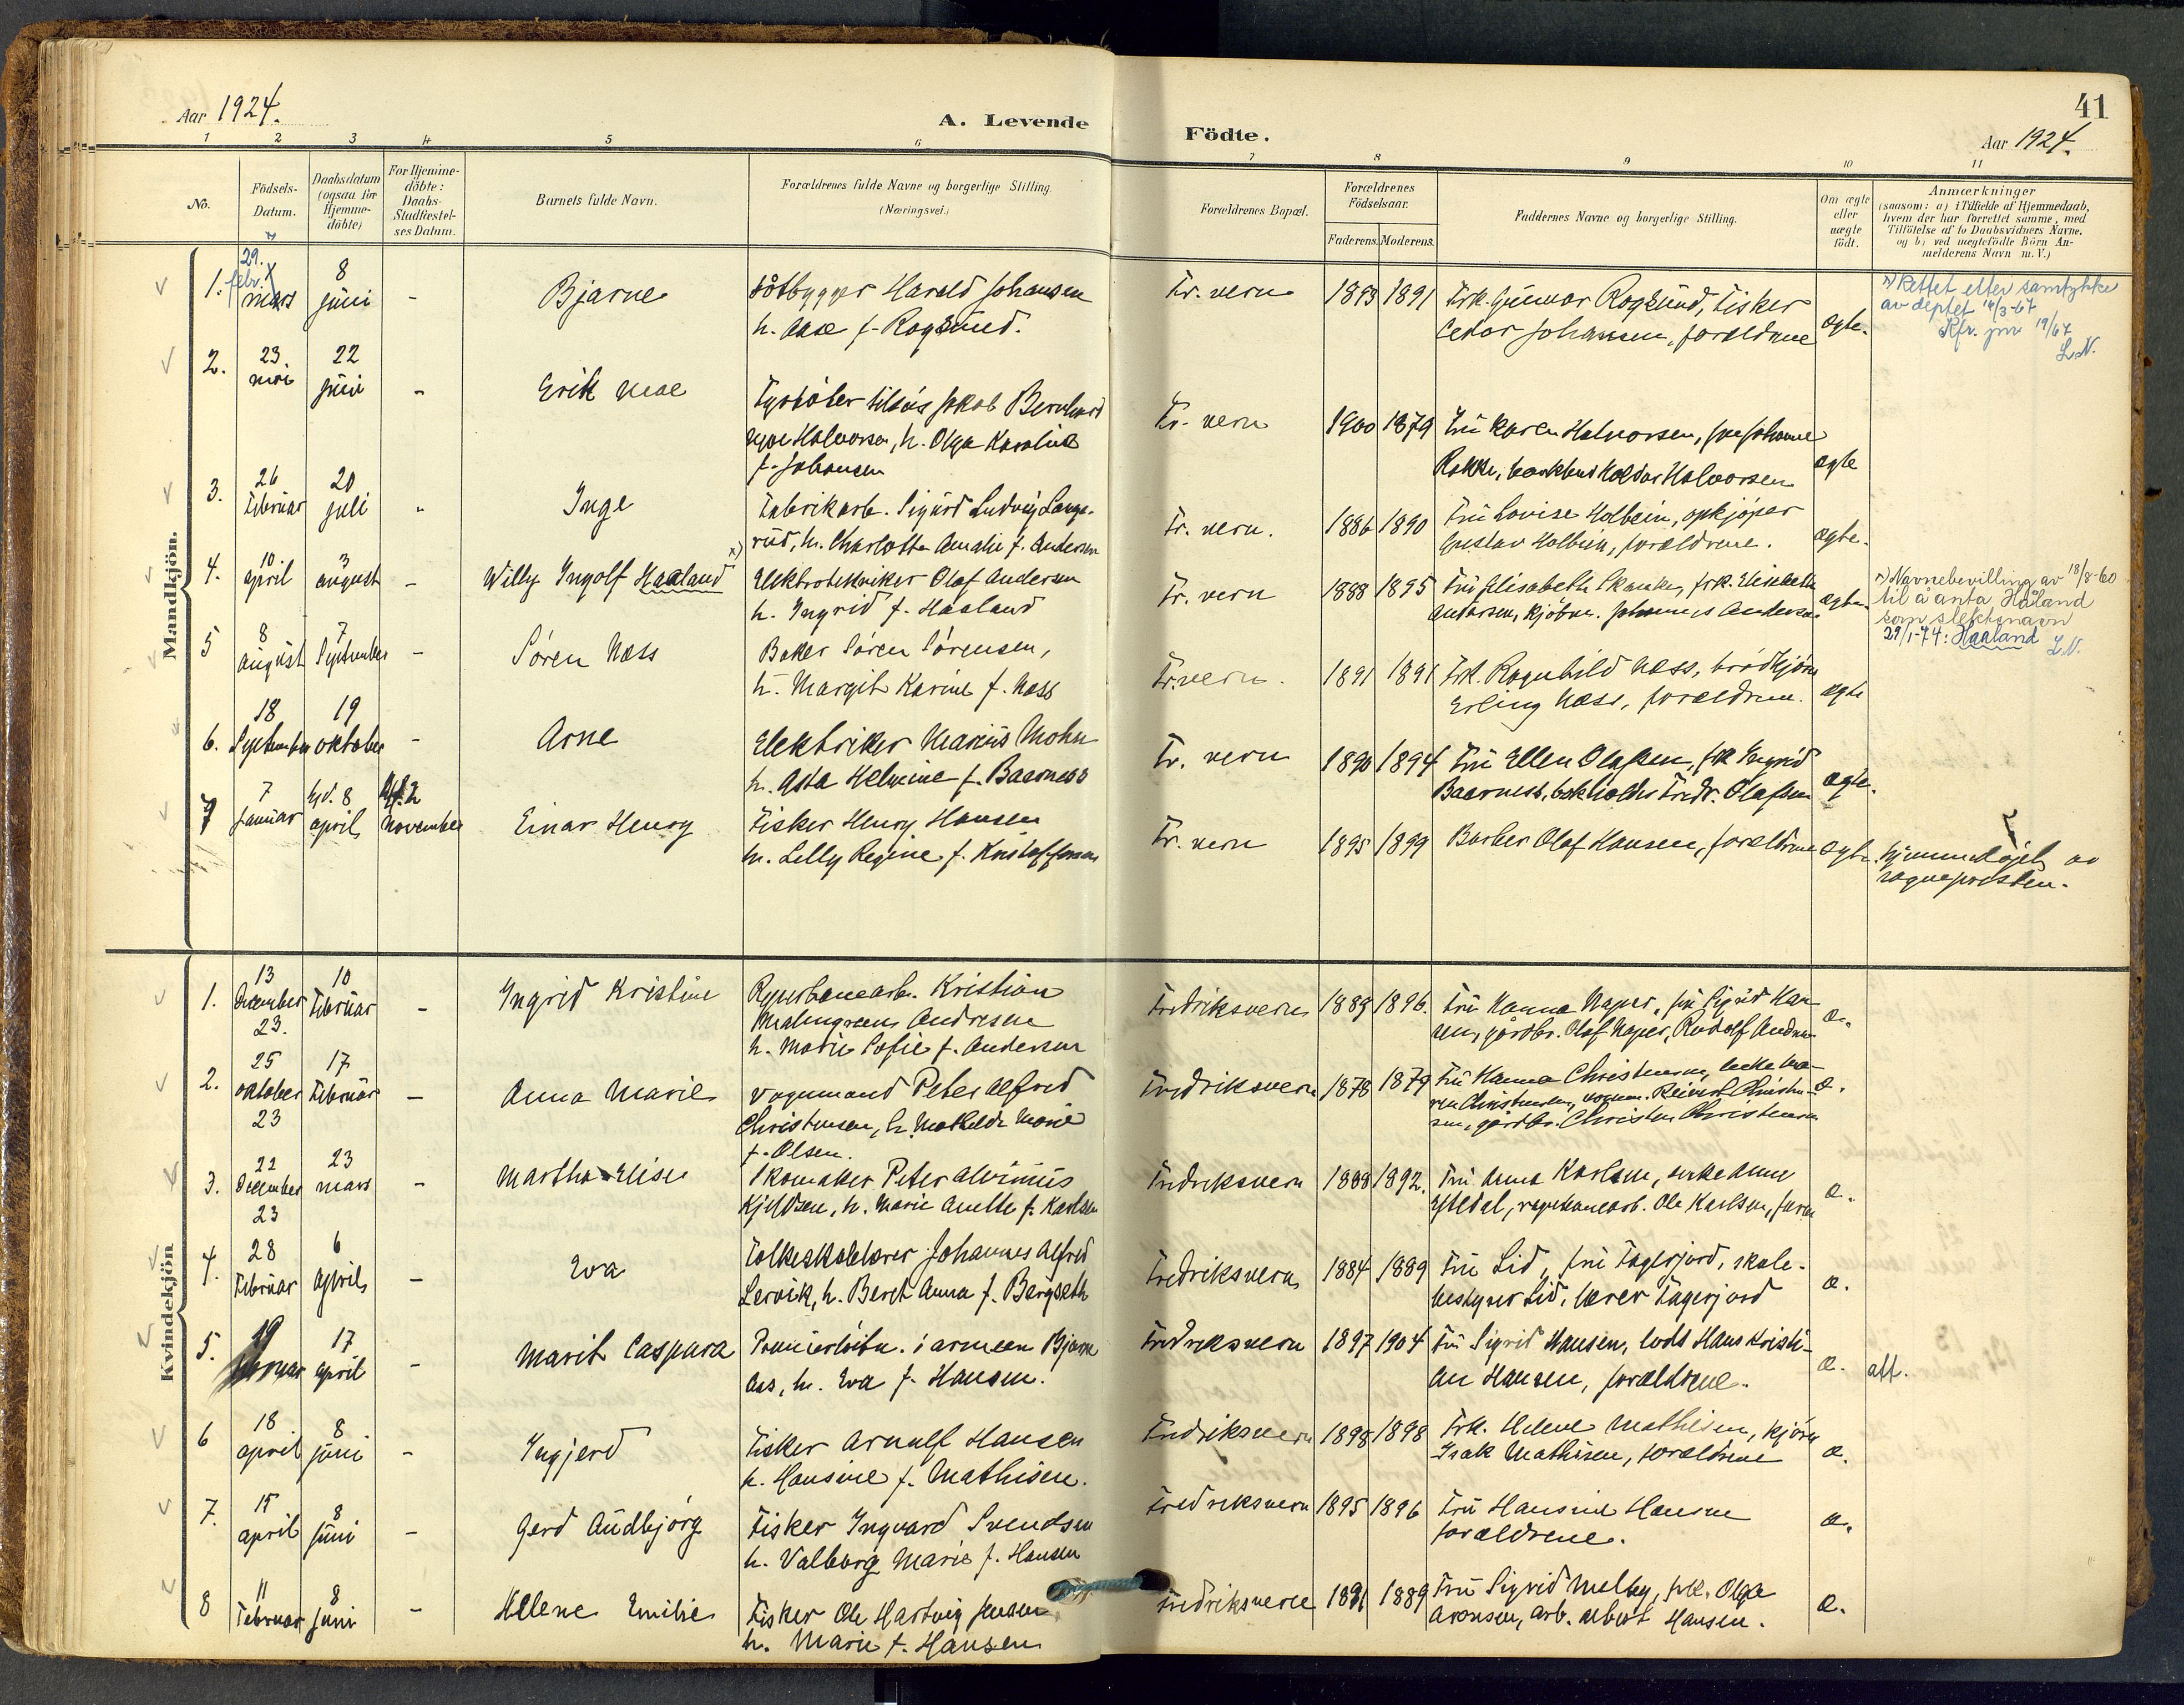 Aar 1924.
A. Levende
Födte.
41
Aar 1924.
1 2 3 4 5 6 7 8 9 10 11
No.
Födsels-
Datum.
Daabsdatum
(ogsaa for
Hjemme-
döbte)
For Hjemme-
döbte:
Daabs-
Stadfæstel-
ses Datum.
Barnets fulde Navn.
Forældrenes fulde Navne og borgerlige Stilling.
(Næringsvei.)
Forældrenes Bopæl.
Forældrenes
Födselsaar.
Faderens. Moderens.
Faddernes Navne og borgerlige Stilling.
Om ægte
eller
uægte
födt.
Anmærkninger
(saasom: a) i Tilfælde af Hjemmedaab,
hvem der har forrettet samme, med
Tilföielse af to Daabsvidners Navne.
og b) ved uægtefödte Börn An-
melderens Navn m.V.)
Mandkjön.
1. 29. febr. mars
8 juni
-
Bjarne
Båtbygger Harald Johansen
h. Aase f. Rogsund.
Fr. vern
1893 1891
Frk. Gunvor Rogsund, Fisker
Johansen, forældrene
ægte.
x) Rettet etter samtykke
av deptet 14/3-67
Kfr. jnr 19/67
L.N.
2. 23 mai
22 juni
-
Erik Moe
Jakob Bernhard
Moe Halvorsen, h. Olga Karoline
f. Johansen
Fr. vern
1900 1879
Fru Karen Halvorsen, fru Johanne
Rakke, Halvorsen
ægte
3. 26 Februar
20 juli
"
Inge
Fabrikarb. Sigurd Ludvig Lange-
rud, h. Charlotte Amalie f. Andersen
Fr. vern.
1886 1890
Fru Lovise Holbein, opkjöper
Gustav Holbein, forældrene.
ægte.
4. 10 april
3 august
-
Willy Ingolf Haaland x)
Elektrotekniker Olaf Andersen
h. Ingrid f. Haaland
Fr. vern
1888 1895
Fru Elisabeth Skanke, frk. Elisabeth
Andersen, kjöbm. Johannes Andersen
ægte.
x) Navnebevilling av 18/8-60
til å anta Håland
som slektsnavn
29/1-74: Haaland L.N.
5 8 august
7 September
-
Sören Næss
Baker Sören Sörensen,
h. Margit Karine f. Næss
Fr. vern.
1891 1891
Frk. Ragnhild Næss, brödkjörer
Erling Næss, forældrene.
ægte
6. 18 September
19 oktober
-
Arne
Elektriker Marius Mohn
h. Asta Helmine f. Baarness
Fr. vern
1890 1894
Fru Ellen Olafsen, frk Ingrid
Baarness, Fredr. Olafsen
ægte.
7 7 Januar
hjd. 8 april
2 November
Einar Henry
Fisker Henry Hansen
h. Lilly Regine f. Kristoffersen
Fr. vern
1895 1899
Barber Olaf Hansen, forældrene
ægte.
hjemmedöpt av
sognepresten.
Kvindekjön
1. 13 December 23.
10 Februar
-
Ingrid Kristine
Reperbanearb. Kristian
Malmgreen Andresen
h. Marie Sofie f. Andersen
Fredriksvern
1889 1896.
Fru Hanna Naper, fru Sigrid Han-
sen, gårdbr. Olaf Naper, Rudolf Andresen
æ.
2. 25 oktober 23
17 Februar
-
Anna Marie
Vognmand Peter Alfred
Christensen, h. Mathilde Marie
f. Olsen.
Fredriksvern
1878 1879
Fru Hanna Christensen, enke Ma-
ren Christensen, Reinert Christen-
sen, gårdbr. Christen Christensen
æ.
3. 22 December 23
23 mars
-
Martha Elise
Skomaker Peter Alvinius
Kjeldsen, h. Marie Anette f. Karlsen
Fredriksvern
1888 1892.
Fru Anna Karlsen, enke Anne
Ytedal, reperbanearb. Ole Karlsen, faren
æ.
4. 28 Februar
6 april
-
Eva
Folkeskolelærer Johannes Alfred
Lervik, h. Beret Anna f. Bergseth
Fredriksvern
1884 1889
Fru Lid, fru Fagerjord, skole-
bestyrer Lid, lærer Fagerjord
æ.
5. 19 februar
17 april
-
Marit Caspara
Premierlöitn. i armeen Bjarne
Aas, h. Eva f. Hansen.
Fredriksvern
1897 1904
Fru Sigrid Hansen, lods Hans Kristi-
an Hansen, forældrene.
æ.
att.
6 18 april
8 juni
-
Ingjerd
Fisker Arnulf Hansen
h. Hansine f. Mathisen.
Fredriksvern
1898 1898
Frk. Helene Mathisen,
Isak Mathisen, forældrene
æ.
7. 15 april
8 juni
-
Gerd Audbjörg
Fisker Ingvard Svendsen
h. Valborg Marie f. Hansen
Fredriksvern
1895 1896
Fru Hansine Hansen
forældrene.
æ.
8 11 Februar
8 juni
-
Helene Emilie
Fisker Ole Hartvig Jensen
h. Marie f. Hansen
Fredriksvern
1891 1889
Fru Sigrid Melby, frk. Olga
Aronsen, arb. Albert Hansen.
æ.